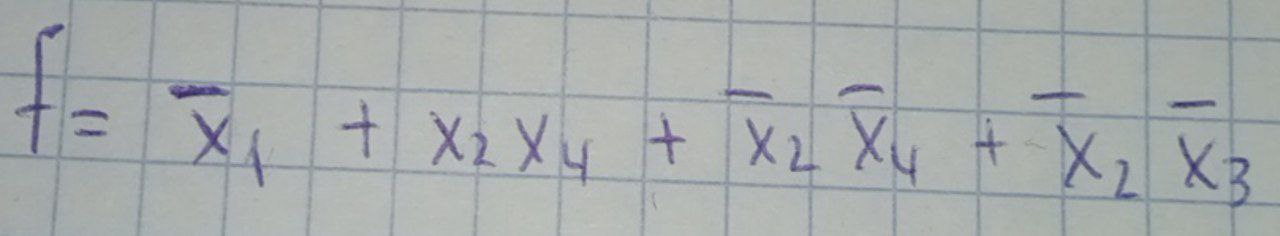 f = x̅₁ + x₂x₄ + x̅₂ x̅₄ + x̅₂ x̅₃